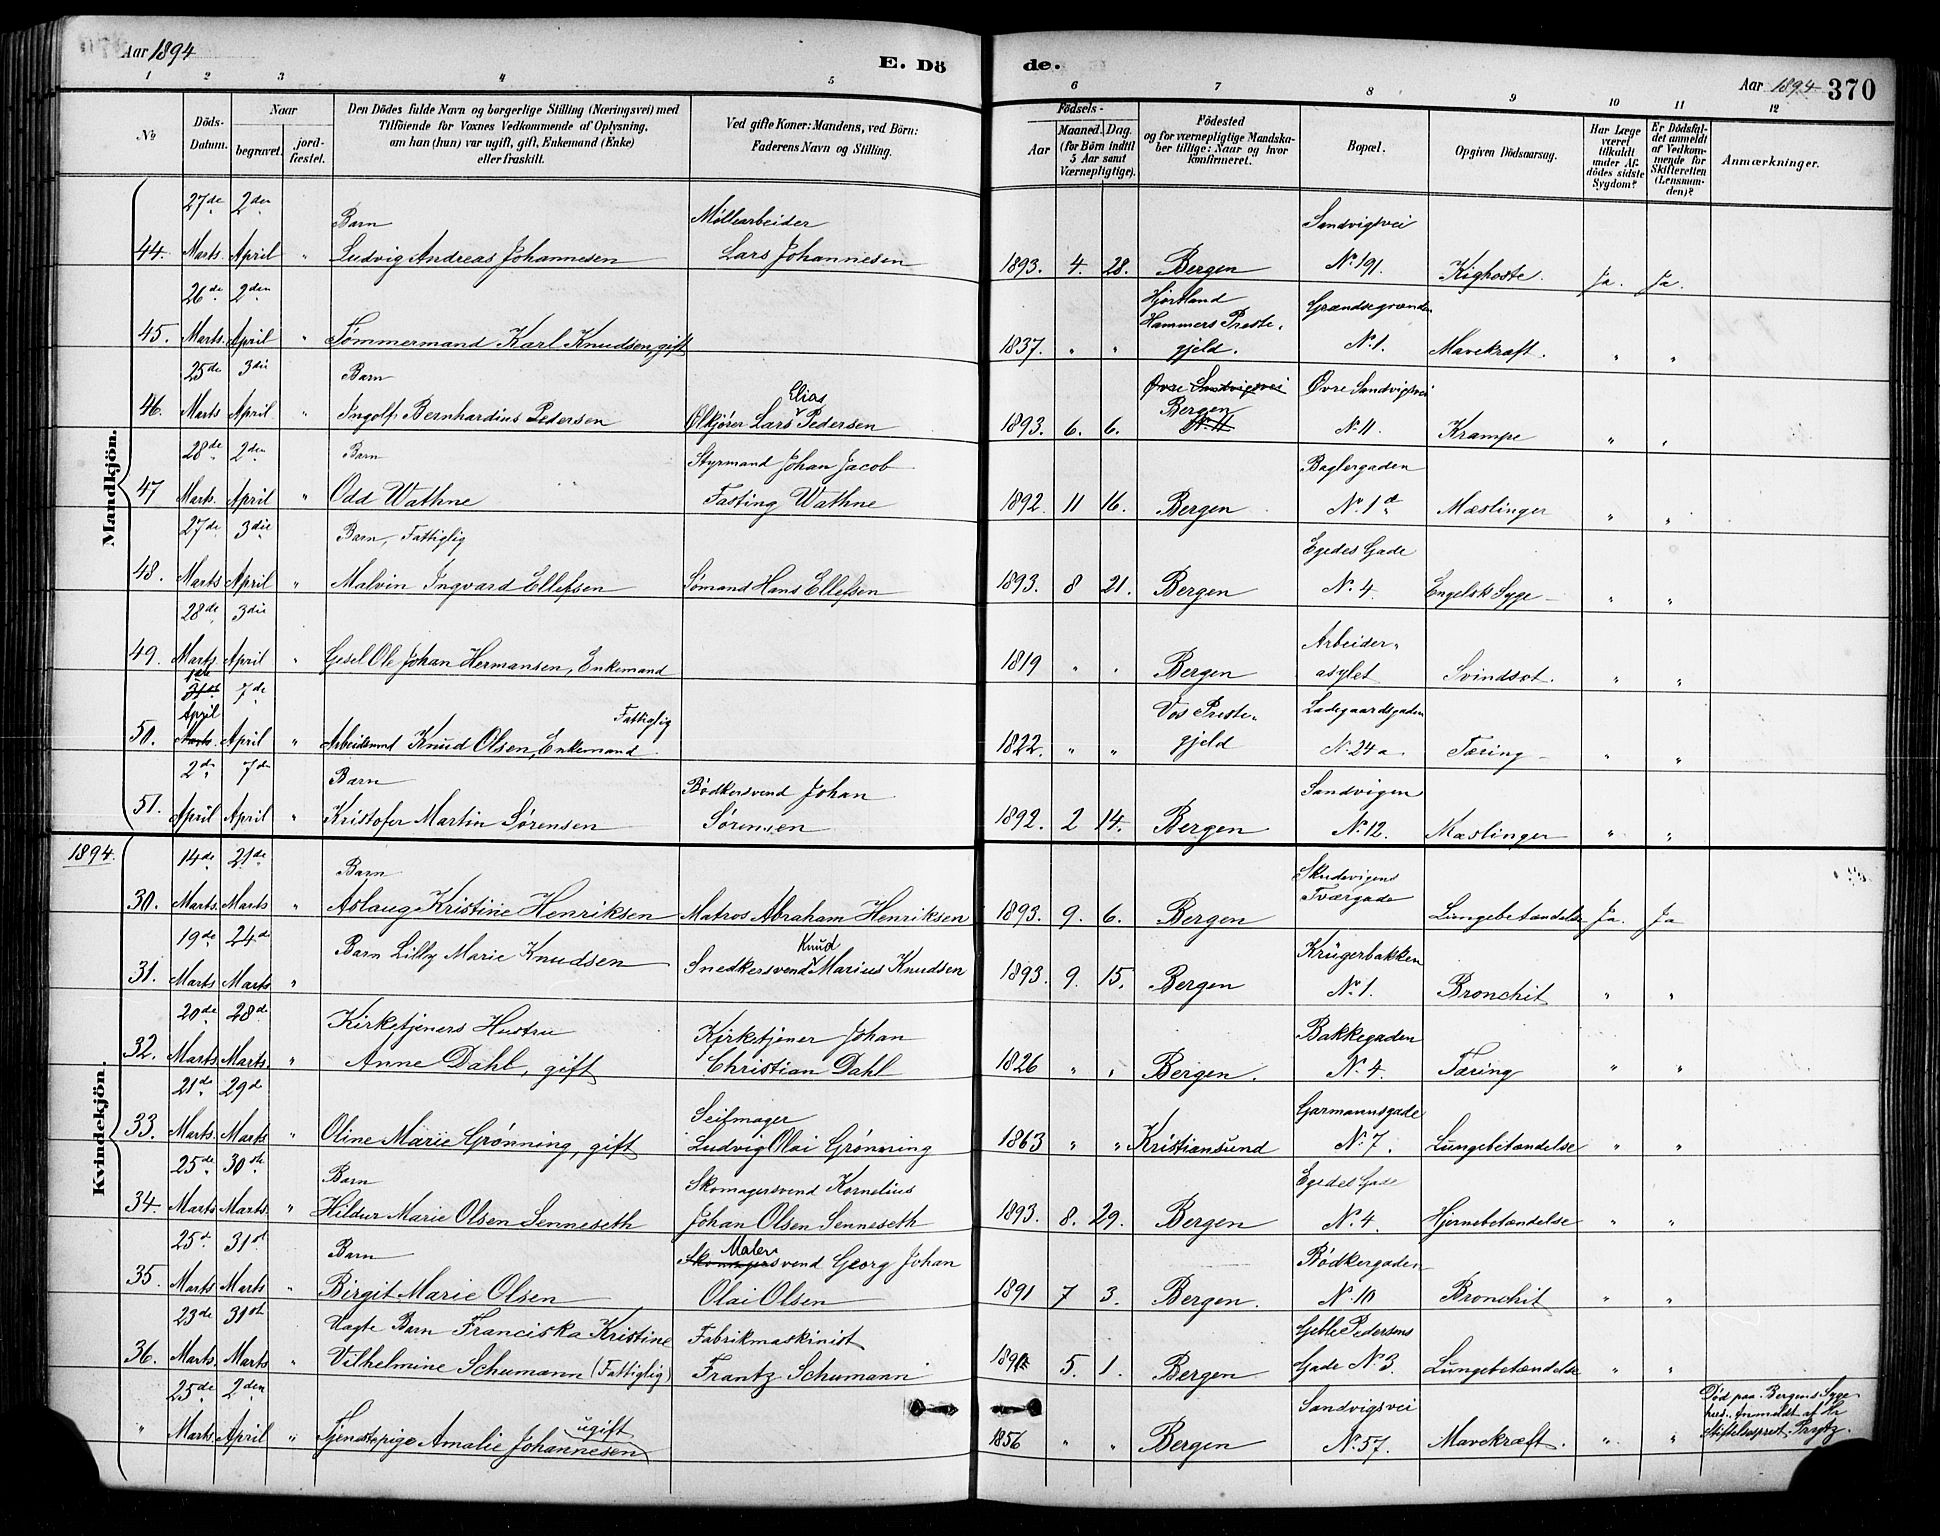 Aar 1894
E. Dö
de.
Aar 1894
370
1 2 3 4 5 6 7 8 9 10 11 12
No
Döds-
Datum.
Naar
begravet.
jord-
fæstet.
Den Dödes fulde Navn og borgerlige Stilling (Næringsvei) med
Tilföiende for Voxnes Vedkommende af Oplysning,
om han (hun) var ugift, gift, Enkemand (Enke)
eller fraskilt.
Ved gifte Koner: Mandens, ved Börn:
Faderens Navn og Stilling.
Födsels-
Aar
Maaned. Dag.
(for Börn indtil
5 Aar samt
Værnepligtige).
Födested
og for værnepligtige Mandska-
ber tillige: Naar og hvor
konfirmeret.
Bopæl.
Opgiven Dödsaarsag.
Har Læge
været
tilkaldt
under Af-
dödes sidste
Sygdom?
Er Dödsfal-
det anmeldt
af Vedkom-
mende for
Skifteretten
(Lensman-
den)?
Anmærkninger.
Mandkjön.
27de 2den Barn Møllearbeider Sandvigsvei
44. Marts. April " Ludvig Andreas Johannesen Lars Johannesen 1893. 4. 28. Bergen No 191. Kighoste. Ja. Ja.
26de 2den Hjortland Grændsegrænden
Hammers Preste-
45. Marts. April " Tømmermand Karl Knudsen, gift 1837. " " gjeld. No 1. Mavekræft. " "
25de 3die Barn Elias Øvre Sandvigsvei Øvre Sandvigsvei
46. Marts April " Ingolf Bernhardius Pedersen Ølkjører Lars Pedersen 1893. 6. 6. Bergen No 11 No 11. Krampe " "
28de 2den Barn Styrmand Johan Jacob Baglergaden
47 Marts. April " Odd Wathne Fasting Wathne 1892. 11 16. Bergen No 1d Mæslinger " "
27de 3die Barn, Fattiglig Egedes Gade
48. Marts April " Malvin Ingvard Ellefsen Sømand Hans Ellefsen 1893. 8 21. Bergen No 4. Engelsk Syge " "
28de 3die Arbeider-
49. Marts April " Gesel Ole Johan Hermansen, Enkemand 1819 " " Bergen asylet Svindsot. " "
1ste
7de Fattiglig Vos Preste- Ladegaardsgaden
April
50. Marts April " Arbeidsmand Knud Olsen, Enkemand. 1822. " " gjeld No 24a. Tæring " "
2de 7de Barn Bødkersvend Johan Sandvigen
51. April April " Kristofer Martin Sørensen Sørensen 1892. 2 14. Bergen No 12. Mæslinger " "
1894.
Kvindekjön.
14de 21de Barn Skudevigens
Tværgade
30. Marts. Marts " Aslaug Kristine Henriksen Matros Abraham Henriksen 1893. 9. 6. Bergen Lungebetændelse Ja. Ja
19de 24de Barn Lilly Marie Knudsen Knud Krügerbakken
31. Marts Marts " Snedkersvend Marius Knudsen 1893. 9. 15. Bergen No 1. Bronchit " "
20de 28de Kirketjeners Hustru Kirketjener Johan Bakkegaden
32. Marts Marts. " Anne Dahl, gift Christian Dahl 1826 " " Bergen. No 4. Tæring " "
21de 29de Seilmager Garmannsgade
33. Marts. Marts " Oline Marie Grønning, gift Ludvig Olai Grønning 1863 " " Kristiansund No 7. Lungebetændelse " "
25de 30te Barn Skomagersvend Kornelius Egedes Gade
34. Marts Marts. " Hildur Marie Olsen Senneseth Johan Olsen Senneseth 1893. 8. 29. Bergen No 4. Hjernebetændelse " "
25d 31st Barn Maler Bødkergaden
Skomagersvend Georg Johan
35. Marts Marts " Birgit Marie Olsen Olai Olsen 1891 7 3. Bergen. No 10 Bronchit " "
23de 31st Uægte Barn Franciska Kristine Fabrikmaskinist Geble Pedersens
36. Marts Marts " Vilhelmine Schumann (Fattiglig) Frantz Schumann 5. 1. Bergen Gade No 3. Lungebetændelse " "
25de 2den ugift Sandvigsvei Død paa Bergens Syge-
hus. Anmeldt af Hr
" Marts. April " Tjenestepige Amalie Johannesen 1856 " " Bergen No 57. Mavekræft. " " Stiftelsesprest